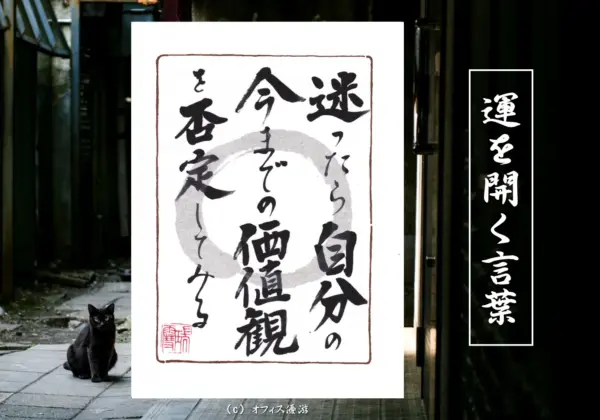 運を開く言葉
迷ったら自分の
今までの価値観
を否定してみる
(c) オフィス漫游